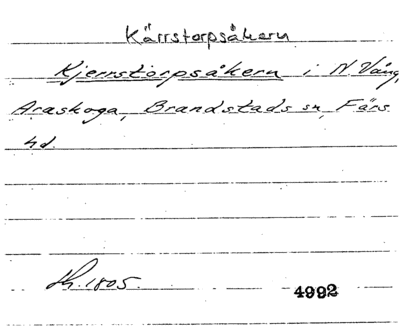 Kärrstorpsåkern
Kjerrstorpsåkern i N. Vång,
Araskoga, Brandstads sn, Färs
hd.
Sk. 1805.
4992